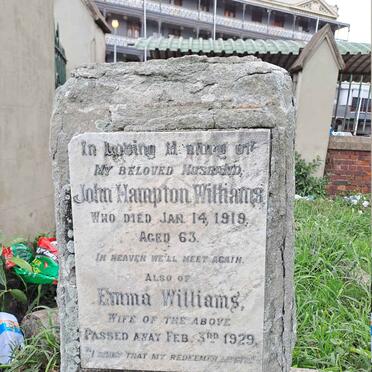 In Loving Memory of
My beloved Husband,
John Hampton Williams,
Who died Jan. 14, 1919,
Aged 63.
In heaven we'll meet again.
Also of
Emma Williams,
Wife of the above
Passed away Feb. 3rd 1929,
"I know that my Redeemer liveth."